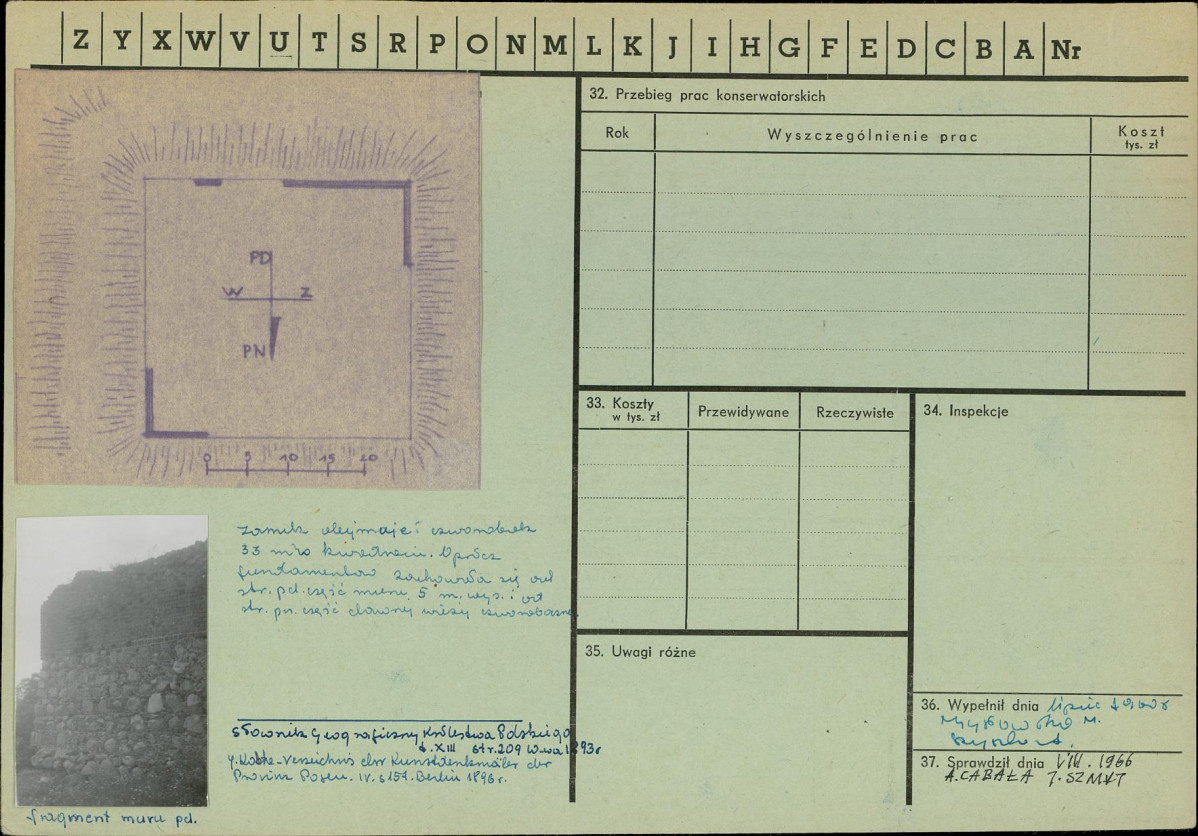 Z Y X W V U T S R P O N M L K J I H G F E D C B A Nr
PD
W Z
PN
0 5 10 15 20
zamek obejmaje: czworobok
33 m. kwadracie. Oprócz
fundamentów zachowała się od
str. pd. część muru, 5 m. wys. i od
str. pn. część dawnej wieży czworobocznej
Słownik Geograficzny Królestwa Polskiego
t. XIII str. 209 W-wa 1893r
J. Kohte - Verzeichnis der Kunstdenkmäler der
Provinz Posen. IV. s 157. Berlin 1896r.
fragment muru pd.
32. Przebieg prac konserwatorskich
Rok Wyszczególnienie prac Koszt
tys. zł
33. Koszty
w tys. zł
Przewidywane Rzeczywiste
34. Inspekcje
35. Uwagi różne
36. Wypełnił dnia lipiec
M.
37. Sprawdził dnia VIII. 1966
A. CABAŁA J. SZMYT